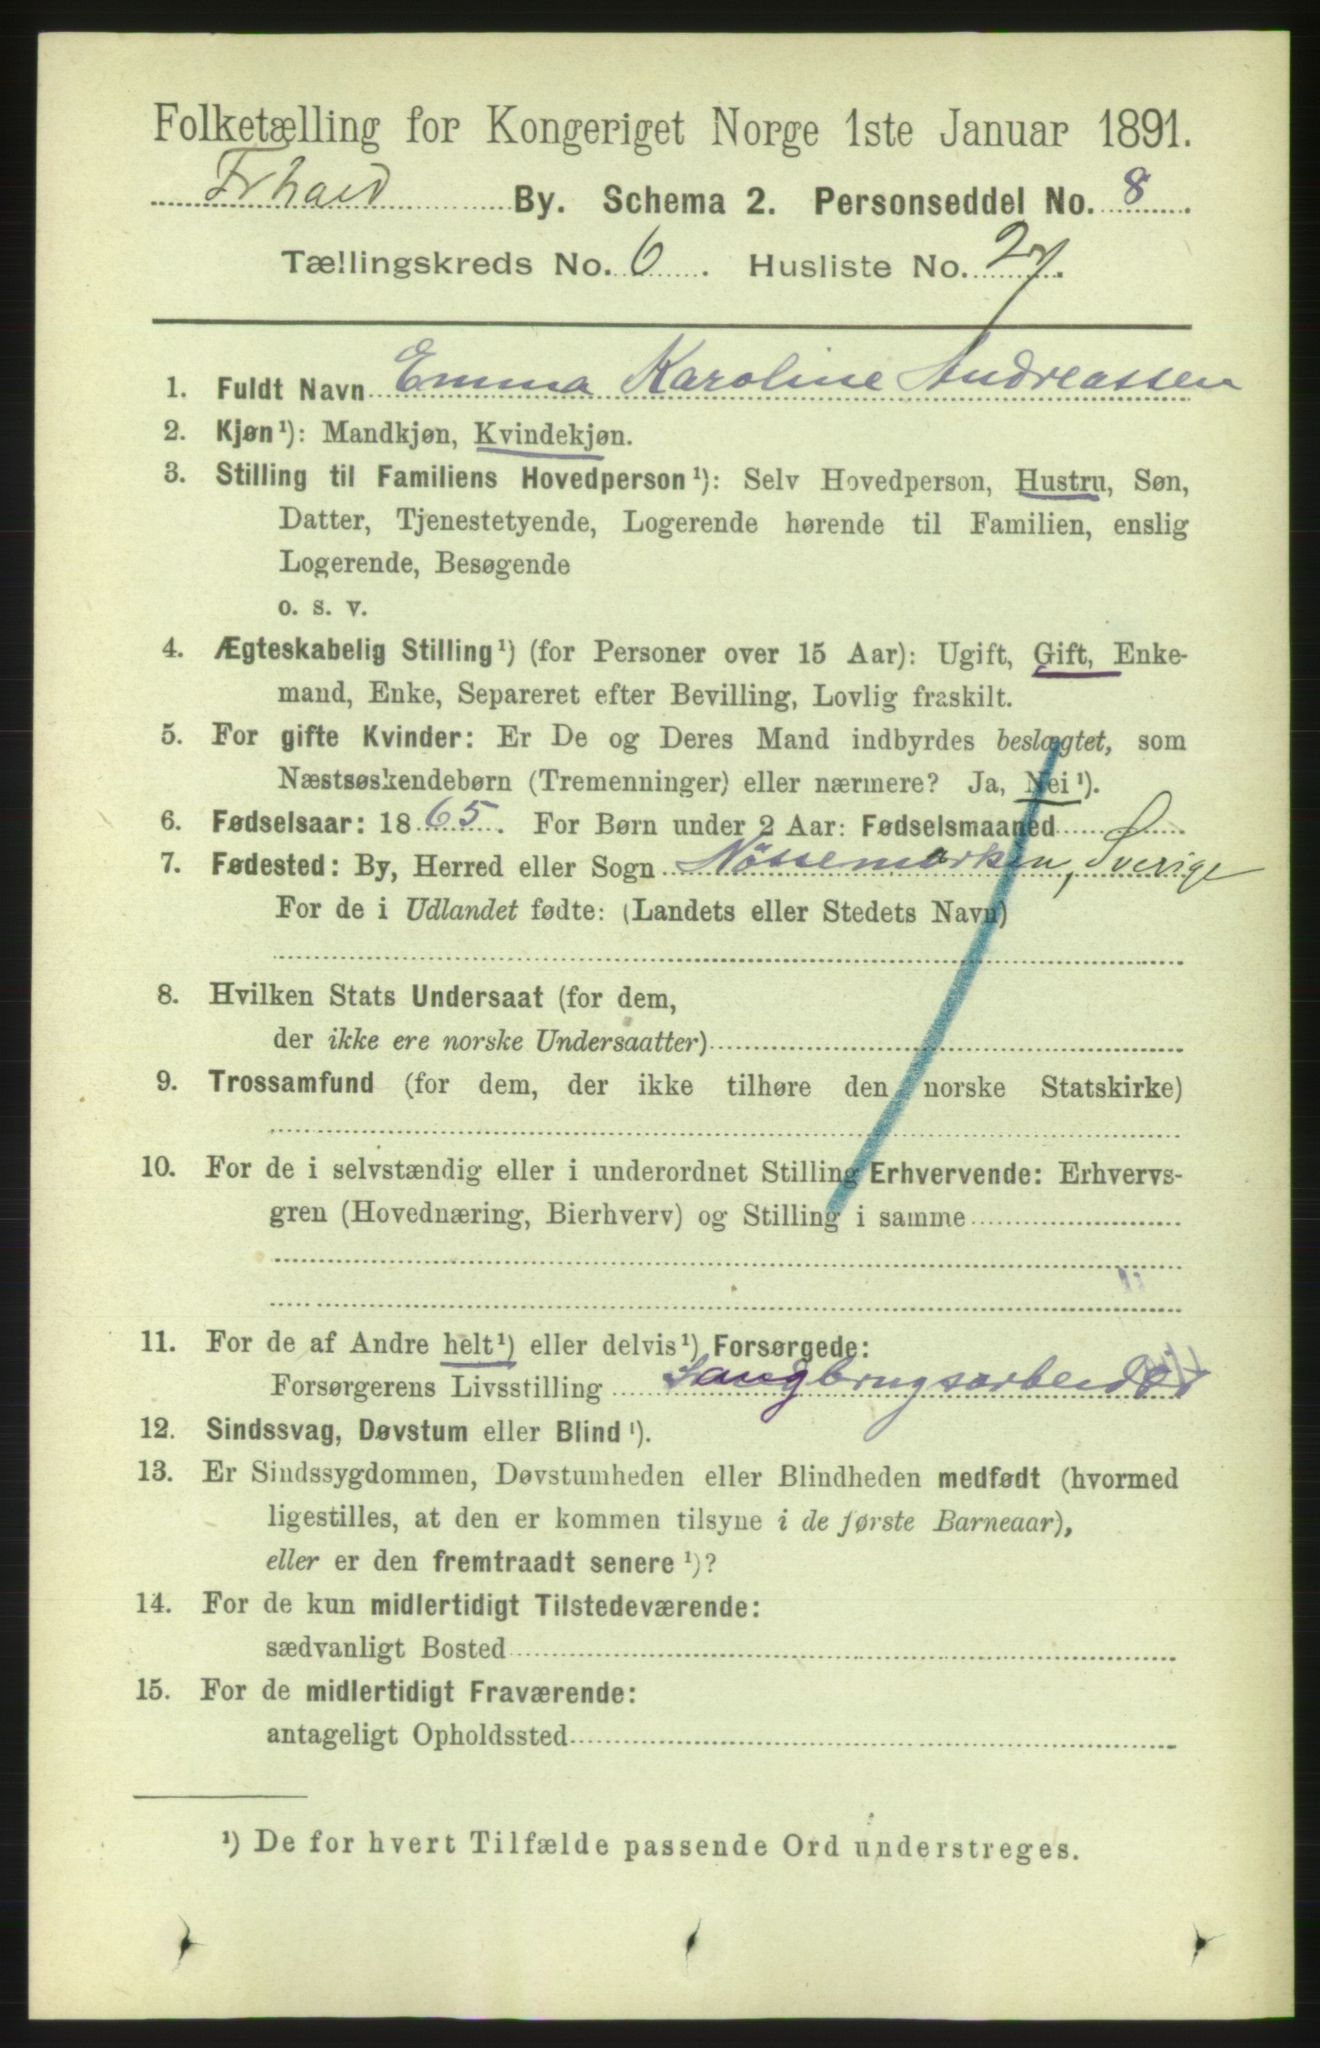 Folketælling for Kongeriget Norge 1ste Januar 1891.
Frhald By. Schema 2. Personseddel No. 8
Tællingskreds No. 6. Husliste No. 27.
1. Fuldt Navn Emma Karoline Andreassen
2. Kjøn¹): Mandkjøn, Kvindekjøn.
3. Stilling til Familiens Hovedperson¹): Selv Hovedperson, Hustru, Søn,
Datter, Tjenestetyende, Logerende hørende til Familien, enslig
Logerende, Besøgende
o. s. v.
4. Ægteskabelig Stilling¹) (for Personer over 15 Aar): Ugift, Gift, Enke-
mand, Enke, Separeret efter Bevilling, Lovlig fraskilt.
5. For gifte Kvinder: Er De og Deres Mand indbyrdes beslægtet, som
Næstsøskendebørn (Tremenninger) eller nærmere? Ja, Nei¹).
6. Fødselsaar: 1865. For Børn under 2 Aar: Fødselsmaaned
7. Fødested: By, Herred eller Sogn Nössemarken, Sverige
For de i Udlandet fødte: (Landets eller Stedets Navn)
8. Hvilken Stats Undersaat (for dem,
der ikke ere norske Undersaatter)
9. Trossamfund (for dem, der ikke tilhøre den norske Statskirke)
10. For de i selvstændig eller i underordnet Stilling Erhvervende: Erhvervs-
gren (Hovednæring, Bierhverv) og Stilling i samme
11. For de af Andre helt¹) eller delvis¹) Forsørgede:
Forsørgerens Livsstilling Saugbrugsarbeider
12. Sindssvag, Døvstum eller Blind¹).
13. Er Sindssygdommen, Døvstumheden eller Blindheden medfødt (hvormed
ligestilles, at den er kommen tilsyne i de første Barneaar),
eller er den fremtraadt senere¹)?
14. For de kun midlertidigt Tilstedeværende:
sædvanligt Bosted
15. For de midlertidigt Fraværende:
antageligt Opholdssted
¹) De for hvert Tilfælde passende Ord understreges.